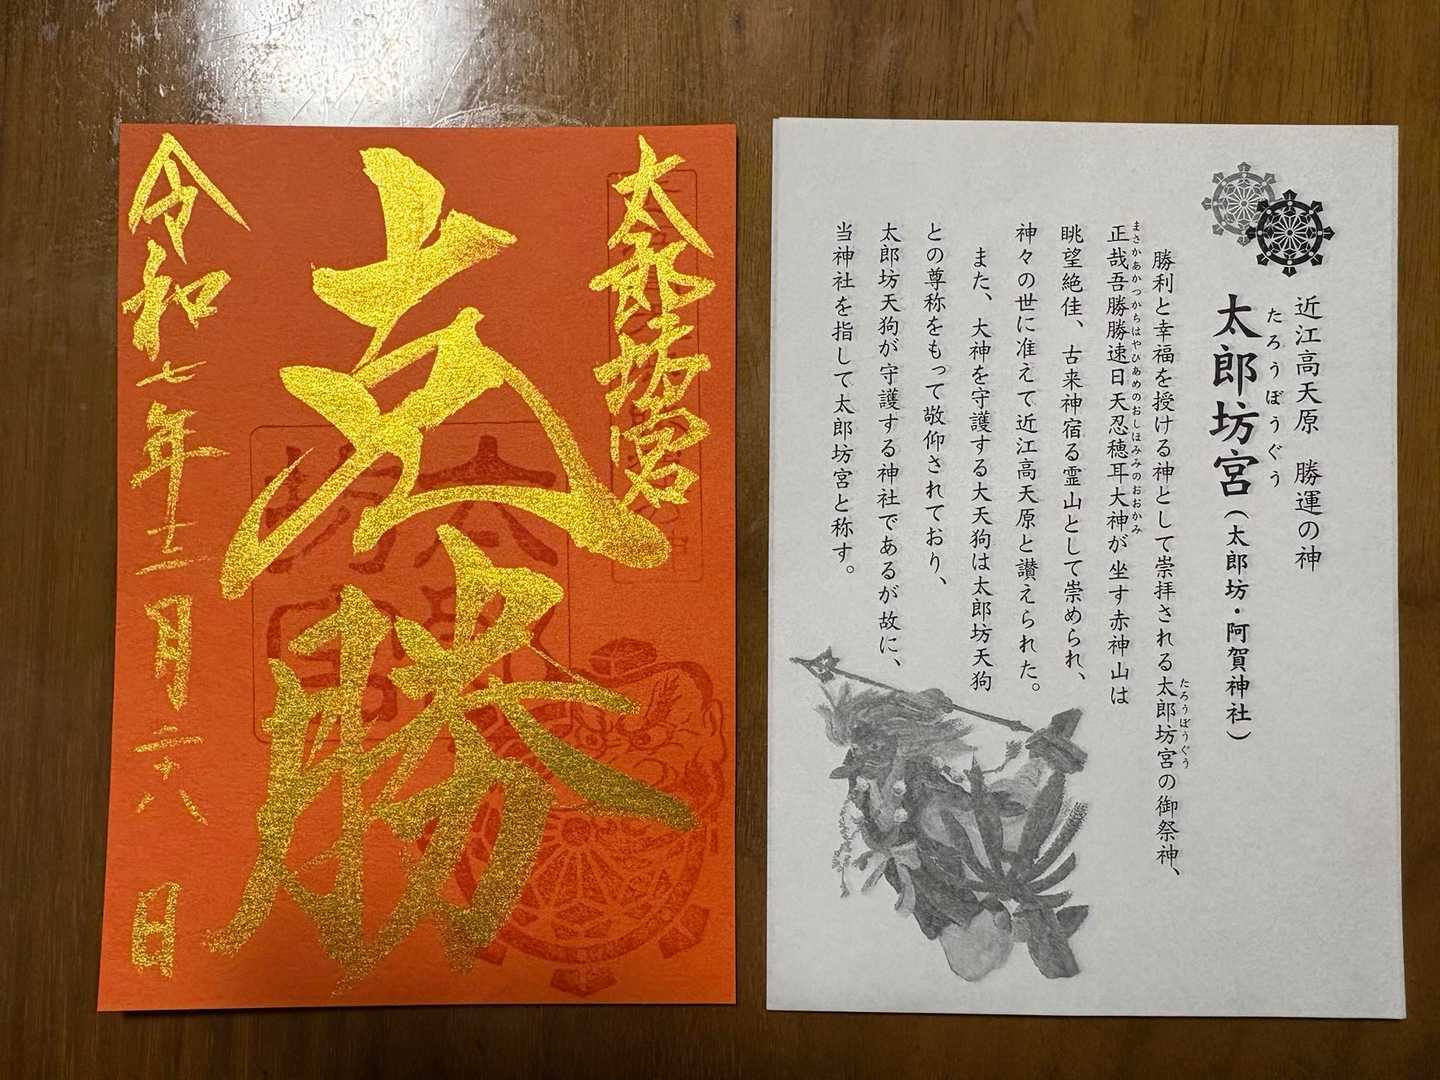 太郎坊宮
勝
令和七年十二月二十八日
太郎
坊宮
近江高天原 勝運の神
たろうぼうぐう
太郎坊宮(太郎坊・阿賀神社)
勝利と幸福を授ける神として崇拝される太郎坊宮の御祭神、
たろうぼうぐう
まさかあかつかちはやひあめのおしほみみのおおかみ
正哉吾勝勝速日天忍穂耳大神が坐す赤神山は
眺望絶佳、古来神宿る霊山として崇められ、
神々の世に准えて近江高天原と讃えられた。
また、大神を守護する大天狗は太郎坊天狗
との尊称をもって敬仰されており、
太郎坊天狗が守護する神社であるが故に、
当神社を指して太郎坊宮と称す。